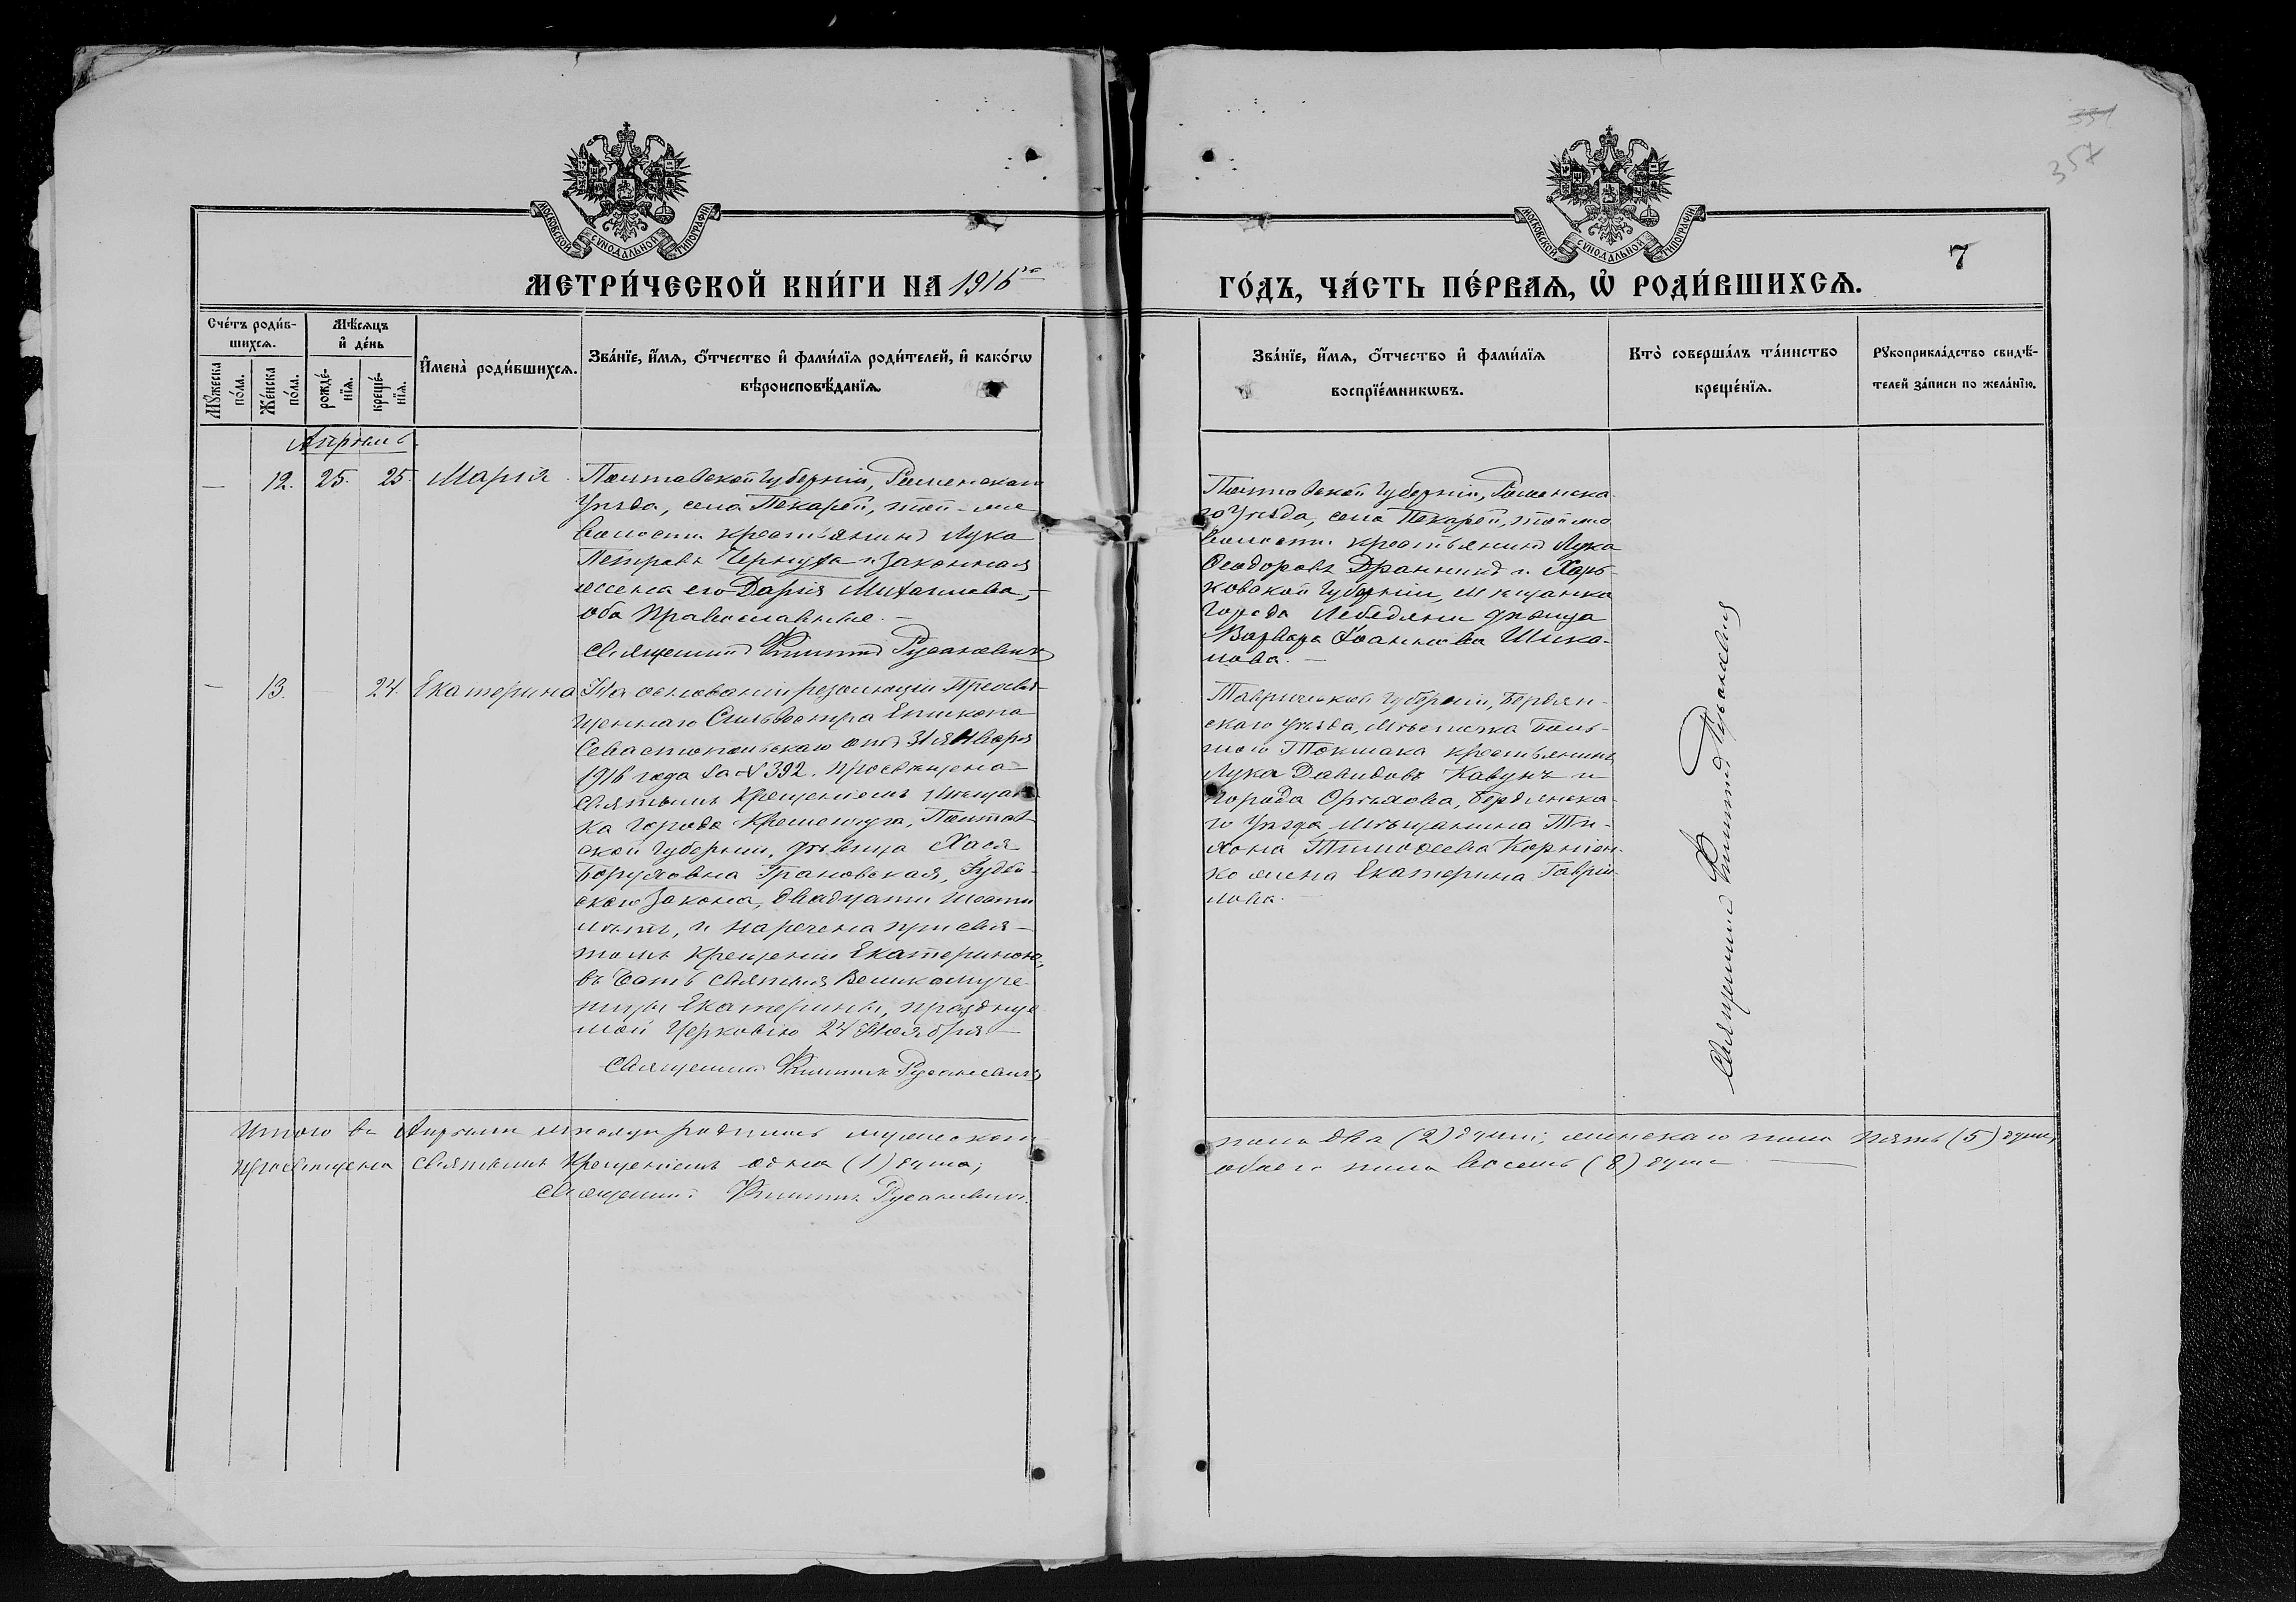 331
357
МОСКОВСКОЙ СѴНОДАЛЬНОЙ ТИПОГРАФІИ
МОСКОВСКОЙ СѴНОДАЛЬНОЙ ТИПОГРАФІИ
7
МЕТРИ́ЧЕСКОЙ КНИ́ГИ НА 1916 го
ГО́ДЪ, ЧА́СТЬ ПЕ́РВАѦ, Ѡ҆ РОДИ́ВШИХСѦ.
Сче́тъ роди́в-
шихсѧ.
Мѣ́сѧцъ
и҆ де́нь
Мꙋ́жеска
по́ла.
Же́нска
по́ла.
рожде́-
нїѧ.
креще́-
нїѧ.
И҆мена̀ роди́вшихсѧ.
Зва́нїе, и҆́мѧ, ѻ҆́тчество и҆ фами́лїѧ роди́телей, и҆ како́гѡ
вѣроисповѣ́данїѧ.
Зва́нїе, и҆́мѧ, ѻ҆́тчество и҆ фами́лїѧ
воспрїе́мникѡвъ.
Кто̀ соверша́лъ та́инство
креще́нїѧ.
Рꙋкоприкла́дство свидѣ́-
телей за́писи по жела́нїю.
Апрѣль
— 12. 25. 25. Марія.
Полтавской Губерніи, Роменскаго
Уѣзда, села Пекарей, той-же
волости крестьянинъ Лука
Петровъ Чернуха и законная
жена его Дарія Михаилова,—
оба православные.—
Священникъ Филиппъ Русаневичъ
Полтавской Губерніи, Роменска-
го Уѣзда, села Пекарей, той же
волости крестьянинъ Лука
Ѳеодоровъ Дранникъ и Харь-
ковской Губерніи, мѣщанка
Города Лебедяни дѣвица
Варвара Іоаннова Шико-
лова.—
— 13. 24. Екатерина
На основаніи резолюціи Преосвя-
щеннаго Сильвестра Епископа
Севастопольскаго отъ 31 Января
1916 года за № 392. просвѣщена
Святымъ Крещеніемъ мѣщан-
ка Города Кременчуга, Полтав-
ской Губерніи, дѣвица Хася
Боруховна Грановская, Іудей-
скаго Закона, двадцати шести
лѣтъ, и наречена при свя-
томъ крещеніи Екатериною,
въ честь святыя Великомуче-
ницы Екатерины, празднуе-
мой Церковію 24 Ноября.—
Священникъ Филиппъ Русаневичъ
Таврической Губерніи, Бердян-
скаго уѣзда, мѣстечка Боль-
шого Токмака крестьянинъ
Лука Давидовъ Кавунъ и
города Орѣхова, Бердянска-
го Уѣзда мѣщанина Ти-
хона Тимоѳеева Корніен-
ко жена Екатерина Гаврiи-
лова.—
Священникъ Филиппъ Русаневичъ
Итого въ Апрѣлѣ мѣсяцѣ родилось мужескаго
пола два (2) души, женскаго пола пять (5) душъ,
просвѣщена святымъ Крещеніемъ одна (1) душа;
обоего пола восемь (8) душъ —
Священникъ Филиппъ Русаневичъ.